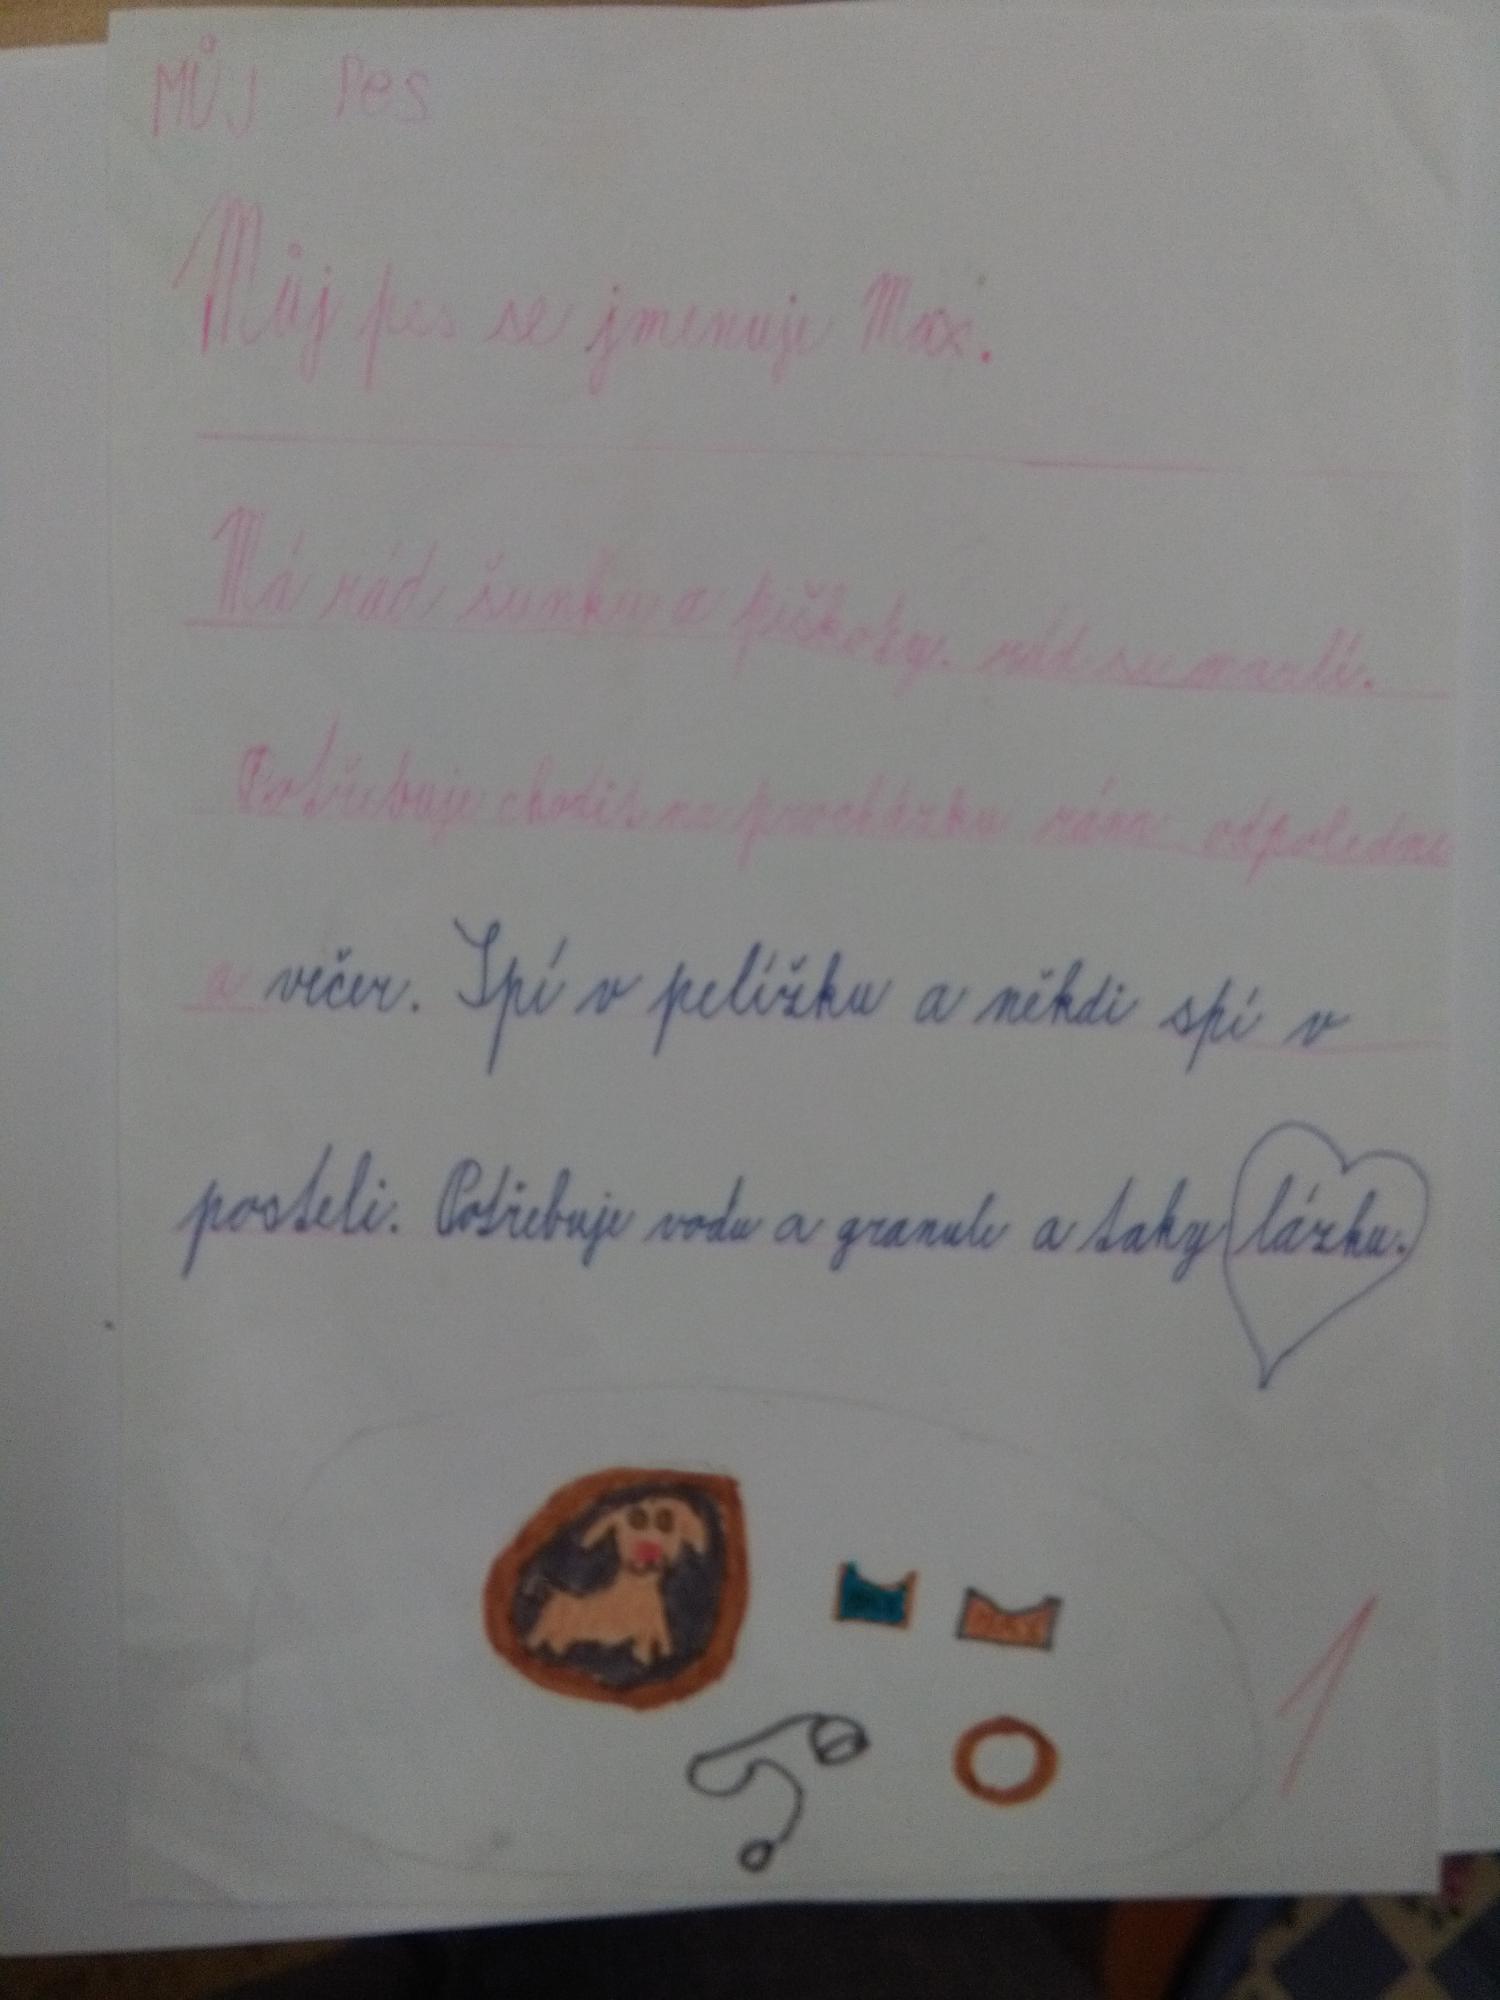 MŮJ Pes
Můj pes se jmenuje Max.
Má rád šunku a piškoty. rád se mazlí.
Potřebuje chodit na procházku ráno odpoledne
a večer. Spí v pelížku a někdi spí v
posteli. Potřebuje vodu a granule a taky lázku.
1